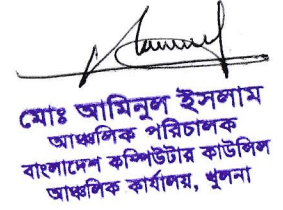 মোঃ আমিনুল ইসলাম
আঞ্চলিক পরিচালক
বাংলাদেশ কম্পিউটার কাউন্সিল
আঞ্চলিক কার্যালয়, খুলনা